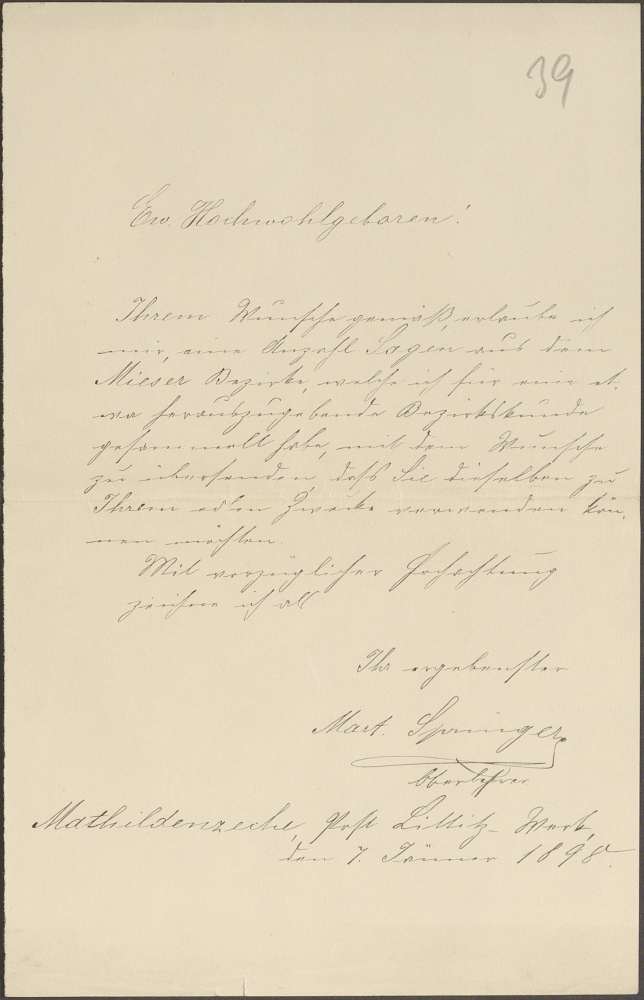 39
Ew. Hochwohlgeboren!
Ihrem Wunsche gemäß, erlaube ich
mir, eine Anzahl Sagen aus dem
Mieser Bezirke, welche ich für eine et-
wa herauszugebende Bezirkskunde
gesammelt habe, mit dem Wunsche
zu übersenden, daß Sie dieselben zu
Ihrem edlen Zwecke verwenden kön-
nen möchten.
Mit vorzüglicher Hochachtung
zeichne ich als
Ihr ergebenster
Mart. Springer,
Oberlehrer
Mathildenzeche, Post Littitz-Werk,
den 7. Jänner 1898.